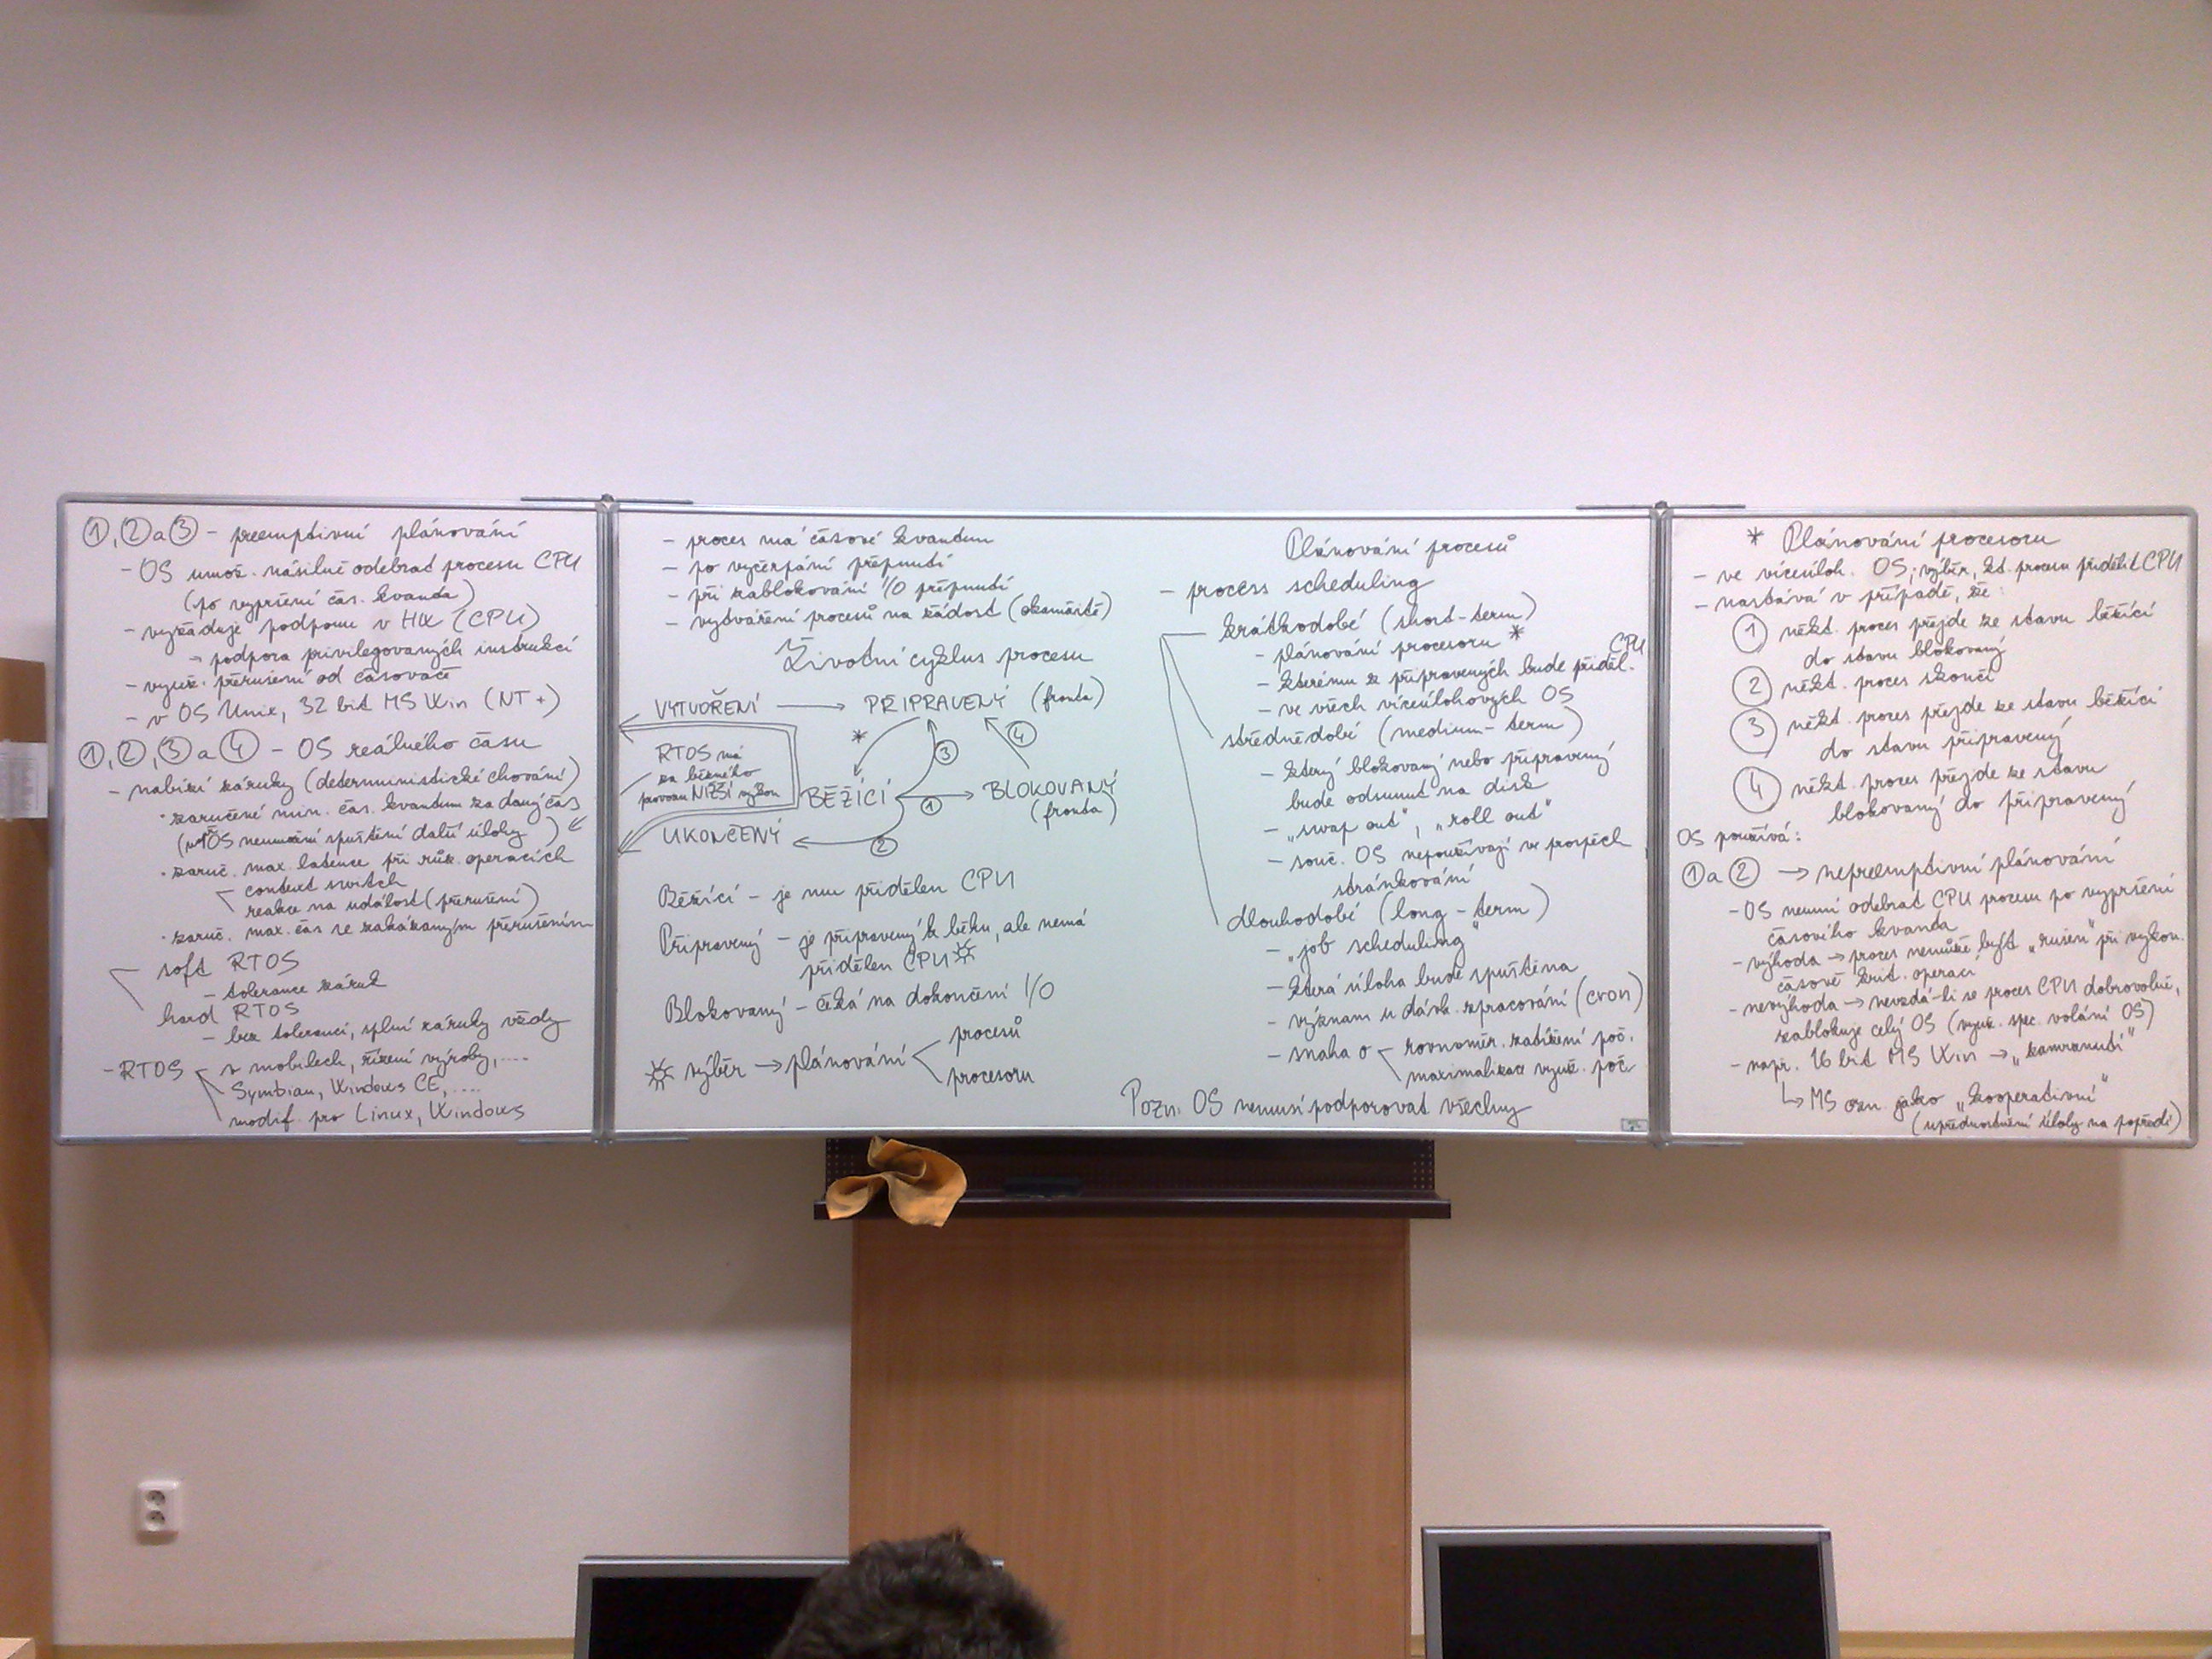 ①, ② a ③ - preemptivní plánování
- OS umož. násilně odebrat procesu CPU
(po vypršení čas. kvanta)
- vyžaduje podporu v HW (CPU)
→ podpora privilegovaných instrukcí
- využ. přerušení od časovače
- v OS Unix, 32 bit MS Win (NT+)
①, ②, ③ a ④ - OS reálného času
- nabízí záruky (deterministické chování)
· zaručené min. čas. kvantum za daný čas
(OS neumožní spuštění další úlohy)
· zaruč. max. latence při růz. operacích
context switch
reakce na událost (přerušení)
· zaruč. max. čas se zakázaným přerušením
soft RTOS
- tolerance záruk
hard RTOS
- bez tolerancí, splní záruky vždy
- RTOS
v mobilech, řízení výroby, ....
Symbian, Windows CE, ....
modif. pro Linux, Windows
- proces má časové kvantum
- po vyčerpání přepnutí
- při zablokování I/O přepnutí
- vytváření procesů na žádost (okamžitě)
Životní cyklus procesu
VYTVOŘENÍ → PŘIPRAVENÝ (fronta)
*
③
④
RTOS má
za běžného
provozu NIŽŠÍ výkon
BĚŽÍCÍ
①
BLOKOVANÝ
(fronta)
UKONČENÝ
②
Běžící - je mu přidělen CPU
Připravený - je připravený k běhu, ale nemá
přidělen CPU ☼
Blokovaný - čeká na dokončení I/O
☼ výběr → plánování
procesů
procesoru
Plánování procesů
- process scheduling
krátkodobé (short-term)
- plánování procesoru *
- kterému z připravených bude příděl. CPU
- ve všech víceúlohových OS
střednědobé (medium-term)
- který blokovaný nebo připravený
bude odsunut na disk
- „swap out", „roll out"
- souč. OS nepoužívají ve prospěch
stránkování
dlouhodobé (long-term)
- „job scheduling"
- která úloha bude spuštěna
- význam u dávk. zpracování (cron)
- snaha o
rovnoměr. zatížení poč.
maximalizace využ. poč.
Pozn. OS nemusí podporovat všechny
* Plánování procesoru
- ve víceúloh. OS; výběr, kt. procesu přidělit CPU
- nastává v případě, že:
① někt. proces přejde ze stavu běžící
do stavu blokovaný
② někt. proces skončí
③ někt. proces přejde ze stavu běžící
do stavu připravený
④ někt. proces přejde ze stavu
blokovaný do připravený
OS používá:
① a ② → nepreemptivní plánování
- OS neumí odebrat CPU procesu po vypršení
časového kvanta
- výhoda → proces nemůže být „rušen" při vykon.
časově krit. operací
- nevýhoda → nevzdá-li se proces CPU dobrovolně,
zablokuje celý OS (využ. spec. volání OS)
- např. 16 bit MS Win → „zamrznutí"
↳ MS ozn. jako „kooperativní"
(upřednostnění úlohy na popředí)